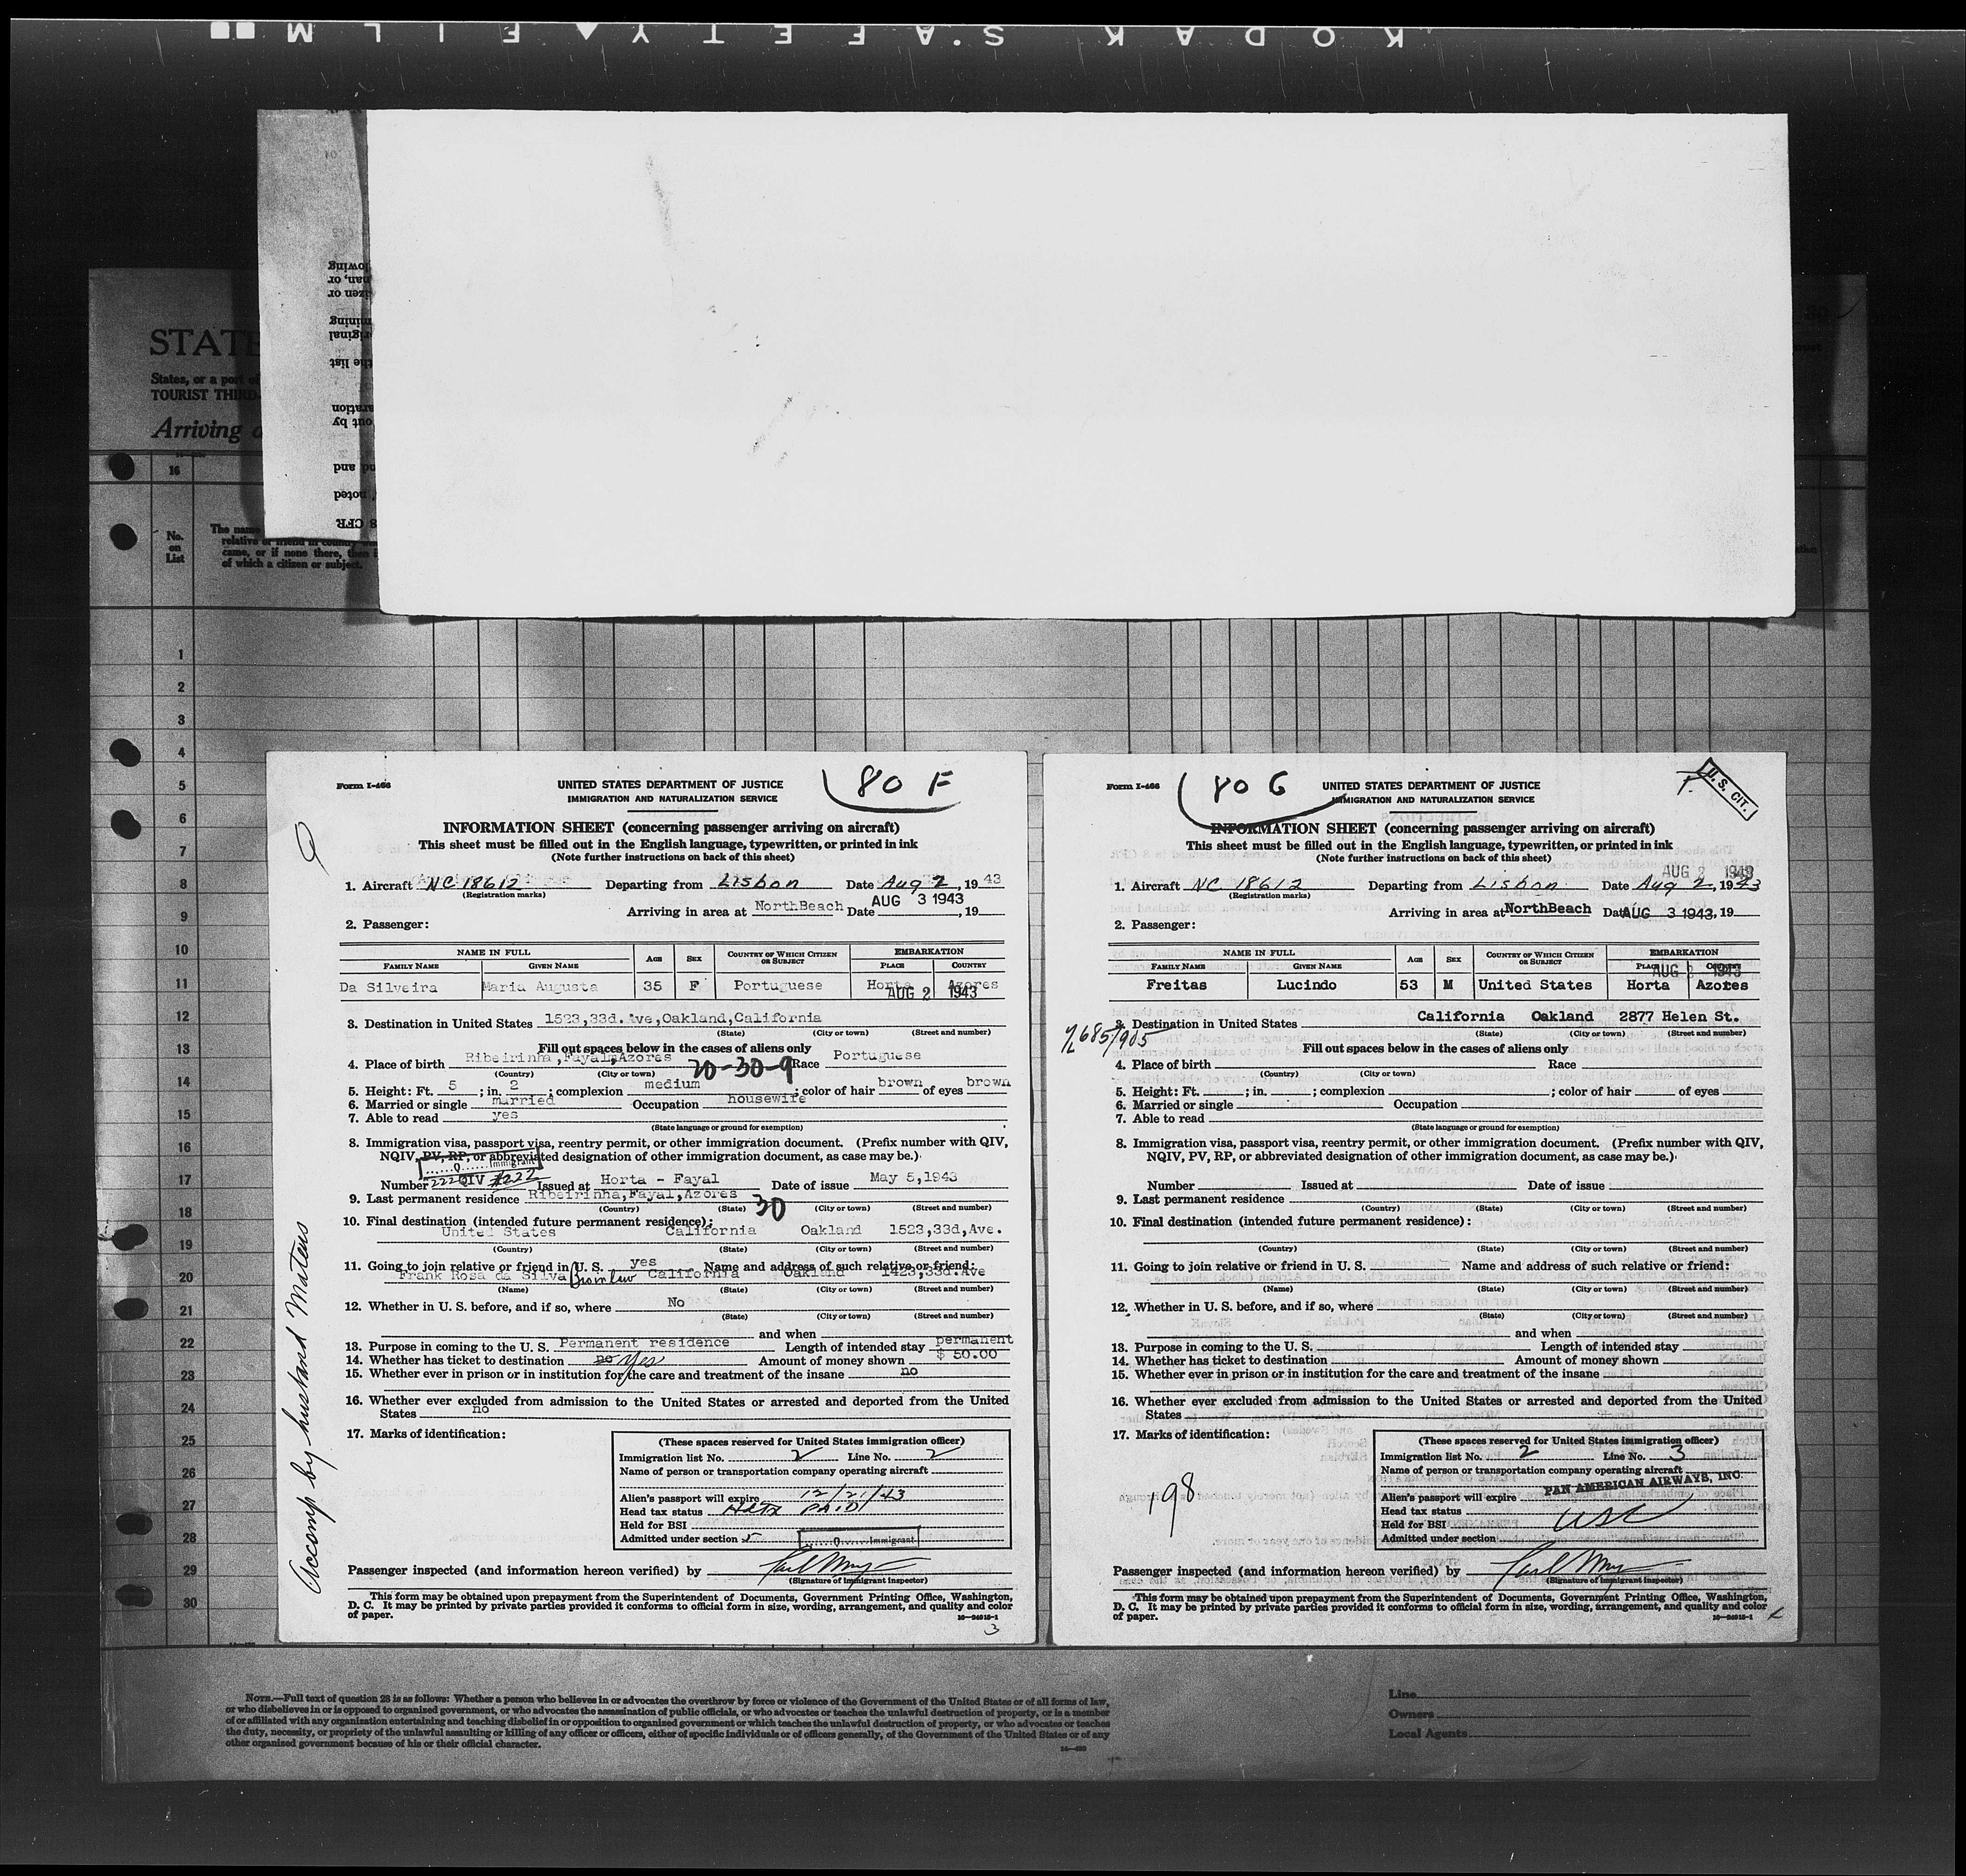 KODAK SAFETY FILM
STATE
States, or a port of
TOURIST THIRD
Arriving
16
No.
on
List
The name
relative or friend in country
came, or if none there, then
of which a citizen or subject.
lowing
nan, or
izen or
mining
riginal
the list
aration
out by
nd and
noted
8 CFR
1
2
3
4
5
6
7
8
9
10
11
12
13
14
15
16
17
18
19
20
21
22
23
24
25
26
27
28
29
30
Accomp by husband Mateus
Form I-466
80 F
UNITED STATES DEPARTMENT OF JUSTICE
IMMIGRATION AND NATURALIZATION SERVICE
INFORMATION SHEET (concerning passenger arriving on aircraft)
This sheet must be filled out in the English language, typewritten, or printed in ink
(Note further instructions on back of this sheet)
1. Aircraft NC 18612 Departing from Lisbon Date Aug 2, 1943
(Registration marks)
Arriving in area at NorthBeach Date AUG 3 1943, 19
2. Passenger:
NAME IN FULL AGE SEX COUNTRY OF WHICH CITIZEN OR SUBJECT EMBARKATION
FAMILY NAME GIVEN NAME PLACE COUNTRY
Da Silveira Maria Augusta 35 F Portuguese Horta Azores
AUG 2 1943
3. Destination in United States 1523,33d.Ave,Oakland,California
(State) (City or town) (Street and number)
Fill out spaces below in the cases of aliens only
4. Place of birth Ribeirinha,Fayal,Azores 20-30-9 Race Portuguese
(Country) (City or town)
5. Height: Ft. 5; in. 2; complexion medium; color of hair brown of eyes brown
6. Married or single married Occupation housewife
7. Able to read yes
(State language or ground for exemption)
8. Immigration visa, passport visa, reentry permit, or other immigration document. (Prefix number with QIV,
NQIV, PV, RP, or abbreviated designation of other immigration document, as case may be.)
Q Immigrant
Number 222 QIV #222 Issued at Horta - Fayal Date of issue May 5,1943
9. Last permanent residence Ribeirinha,Fayal,Azores 30
(Country) (State) (City or town) (Street and number)
10. Final destination (intended future permanent residence):
United States California Oakland 1523,33d,Ave.
(Country) (State) (City or town) (Street and number)
11. Going to join relative or friend in U. S. yes Name and address of such relative or friend:
Frank Rosa da Silva California Oakland 1423,33d.Ave
(Name) (State) (City or town) (Street and number)
12. Whether in U. S. before, and if so, where No
(State) (City or town) (Street and number)
and when
13. Purpose in coming to the U. S. Permanent residence Length of intended stay permanent
14. Whether has ticket to destination no Yes Amount of money shown $ 50.00
15. Whether ever in prison or in institution for the care and treatment of the insane no
16. Whether ever excluded from admission to the United States or arrested and deported from the United
States no
17. Marks of identification:
(These spaces reserved for United States immigration officer)
Immigration list No. 2 Line No. 2
Name of person or transportation company operating aircraft
Alien's passport will expire 12/21/43
Head tax status PAID
Held for BSI
Admitted under section 5 Q Immigrant
Passenger inspected (and information hereon verified) by
(Signature of immigrant inspector)
This form may be obtained upon prepayment from the Superintendent of Documents, Government Printing Office, Washington,
D. C. It may be printed by private parties provided it conforms to official form in size, wording, arrangement, and quality and color
of paper.
16—24915-1
3
Form I-466
80 G
UNITED STATES DEPARTMENT OF JUSTICE
U. S. CIT.
IMMIGRATION AND NATURALIZATION SERVICE
INFORMATION SHEET (concerning passenger arriving on aircraft)
This sheet must be filled out in the English language, typewritten, or printed in ink
(Note further instructions on back of this sheet)
AUG 2 1943
1. Aircraft NC 18612 Departing from Lisbon Date Aug 2, 1943
(Registration marks)
Arriving in area at NorthBeach Date AUG 3 1943, 19
2. Passenger:
NAME IN FULL AGE SEX COUNTRY OF WHICH CITIZEN OR SUBJECT EMBARKATION
FAMILY NAME GIVEN NAME PLACE COUNTRY
AUG 2 1943
Freitas Lucindo 53 M United States Horta Azores
3. Destination in United States California Oakland 2877 Helen St.
(State) (City or town) (Street and number)
685/905
Fill out spaces below in the cases of aliens only
4. Place of birth Race
(Country) (City or town)
5. Height: Ft. ; in. ; complexion ; color of hair of eyes
6. Married or single Occupation
7. Able to read
(State language or ground for exemption)
8. Immigration visa, passport visa, reentry permit, or other immigration document. (Prefix number with QIV,
NQIV, PV, RP, or abbreviated designation of other immigration document, as case may be.)
Number Issued at Date of issue
9. Last permanent residence
(Country) (State) (City or town) (Street and number)
10. Final destination (intended future permanent residence):
(Country) (State) (City or town) (Street and number)
11. Going to join relative or friend in U. S. Name and address of such relative or friend:
(Name) (State) (City or town) (Street and number)
12. Whether in U. S. before, and if so, where
(State) (City or town) (Street and number)
and when
13. Purpose in coming to the U. S. Length of intended stay
14. Whether has ticket to destination Amount of money shown
15. Whether ever in prison or in institution for the care and treatment of the insane
16. Whether ever excluded from admission to the United States or arrested and deported from the United
States
17. Marks of identification:
198
(These spaces reserved for United States immigration officer)
Immigration list No. 2 Line No. 3
Name of person or transportation company operating aircraft
PAN AMERICAN AIRWAYS, INC.
Alien's passport will expire
Head tax status USC
Held for BSI
Admitted under section
Passenger inspected (and information hereon verified) by
(Signature of immigrant inspector)
This form may be obtained upon prepayment from the Superintendent of Documents, Government Printing Office, Washington,
D. C. It may be printed by private parties provided it conforms to official form in size, wording, arrangement, and quality and color
of paper.
16—24915-1
NOTE.—Full text of question 28 is as follows: Whether a person who believes in or advocates the overthrow by force or violence of the Government of the United States or of all forms of law,
or who disbelieves in or is opposed to organized government, or who advocates the assassination of public officials, or who advocates or teaches the unlawful destruction of property, or is a member
of or affiliated with any organization entertaining and teaching disbelief in or opposition to organized government or which teaches the unlawful destruction of property, or who advocates or teaches
the duty, necessity, or propriety of the unlawful assaulting or killing of any officer or officers, either of specific individuals or of officers generally, of the Government of the United States or of any
other organized government because of his or their official character.
Line
Owners
Local Agents